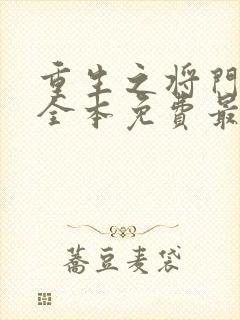 重生之将門
全本免費最
蕎豆麦袋